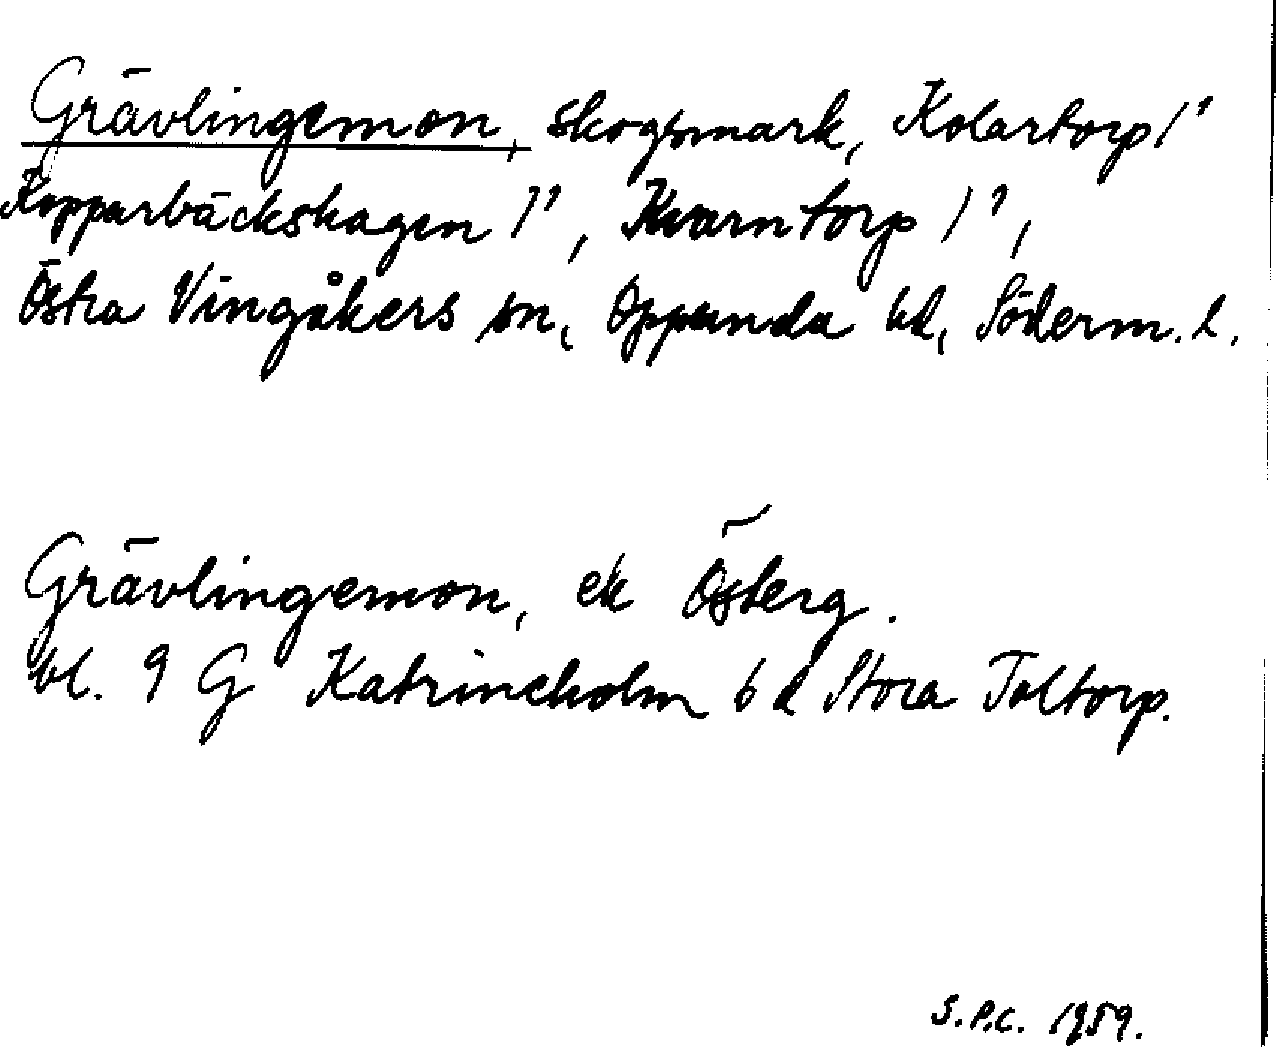 Grävlingemon, skogsmark, Kolartorp 1¹
Kopparbäckshagen 1¹, Kvarntorp 1¹,
Östra Vingåkers sn, Oppunda hd, Söderm. l.
Grävlingemon, ek Österg.
bl. 9 G Katrineholm 6 d Stora Toltorp.
S.P.C. 1959.